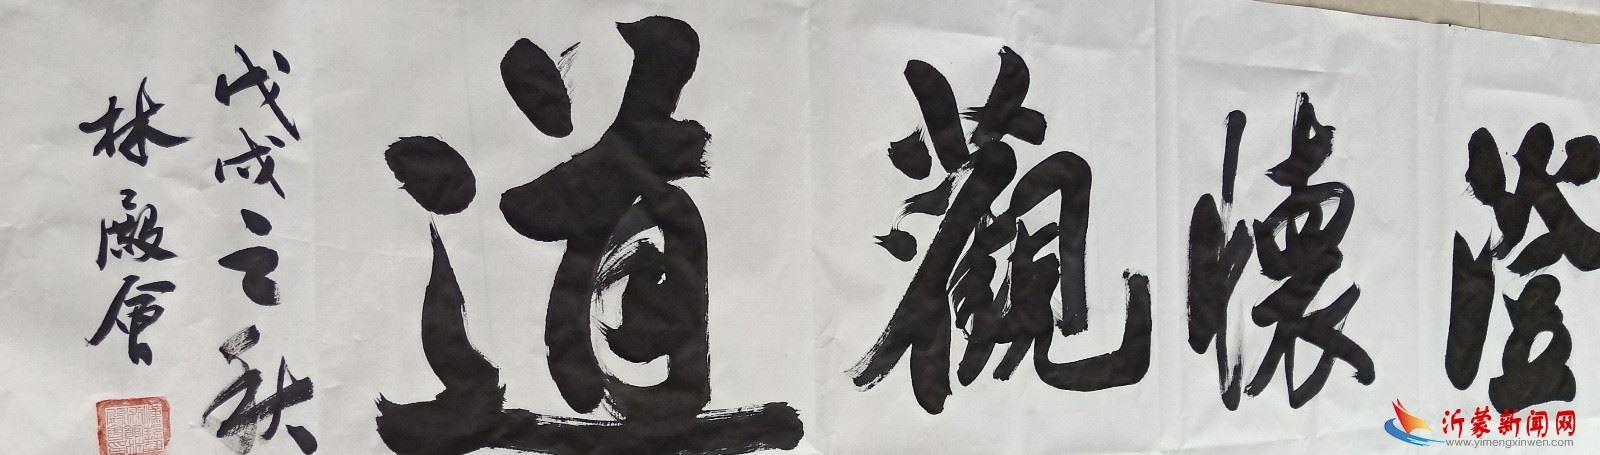 澄懷觀道
戊戌之秋
林殿會
沂蒙新闻网
www.yimengxinwen.com